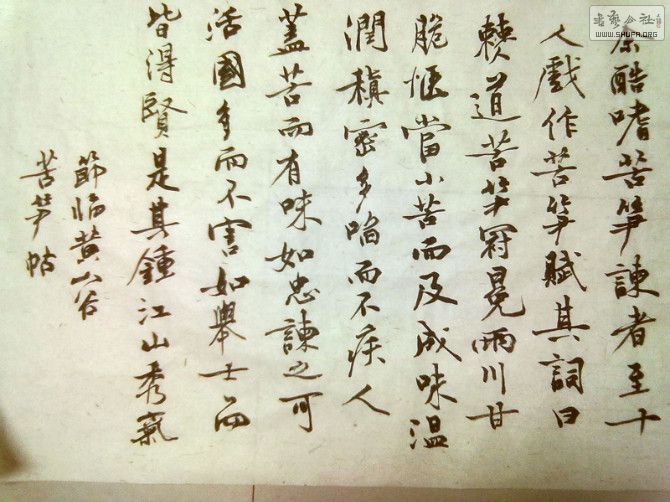 余酷嗜苦笋諫者至十
人戲作苦笋賦其詞曰
道苦笋冠冕兩川甘
脆愜當小苦而及成味温
潤稹密多啗而不疾人
蓋苦而有味如忠諫之可
活國多而不害如舉士而
皆得賢是其鍾江山秀氣
節临黄山谷
苦笋帖
书艺公社
WWW.SHUFA.ORG